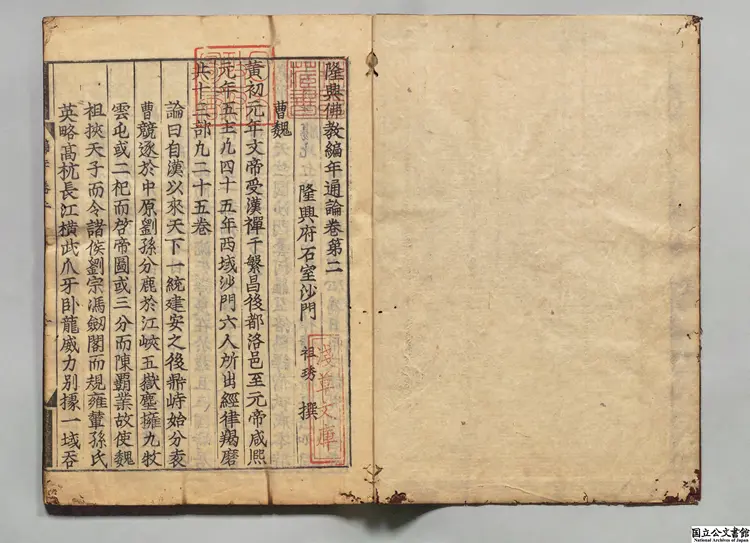 隆興佛教編年通論卷第二
隆興府石室沙門 祖琇 撰
曹魏
黃初元年文帝受漢禪于繁昌後都洛邑至元帝咸熙
元年五主九四十五年西域沙門六人所出經律羯磨
共十三部九二十五卷
論曰自漢以來天下一統建安之後鼎峙始分袁
曹競逐於中原劉孫分鹿於江峽五嶽塵擁九牧
雲屯或二祀而啓帝圖或三分而陳覇業故使魏
祖挾天子而令諸侯劉宗馮劔閣而規雍輦孫氏
英略髙杭長江橫此爪牙卧龍威力别據一域吞
淺草文庫
国立公文書館
National Archives of Japan